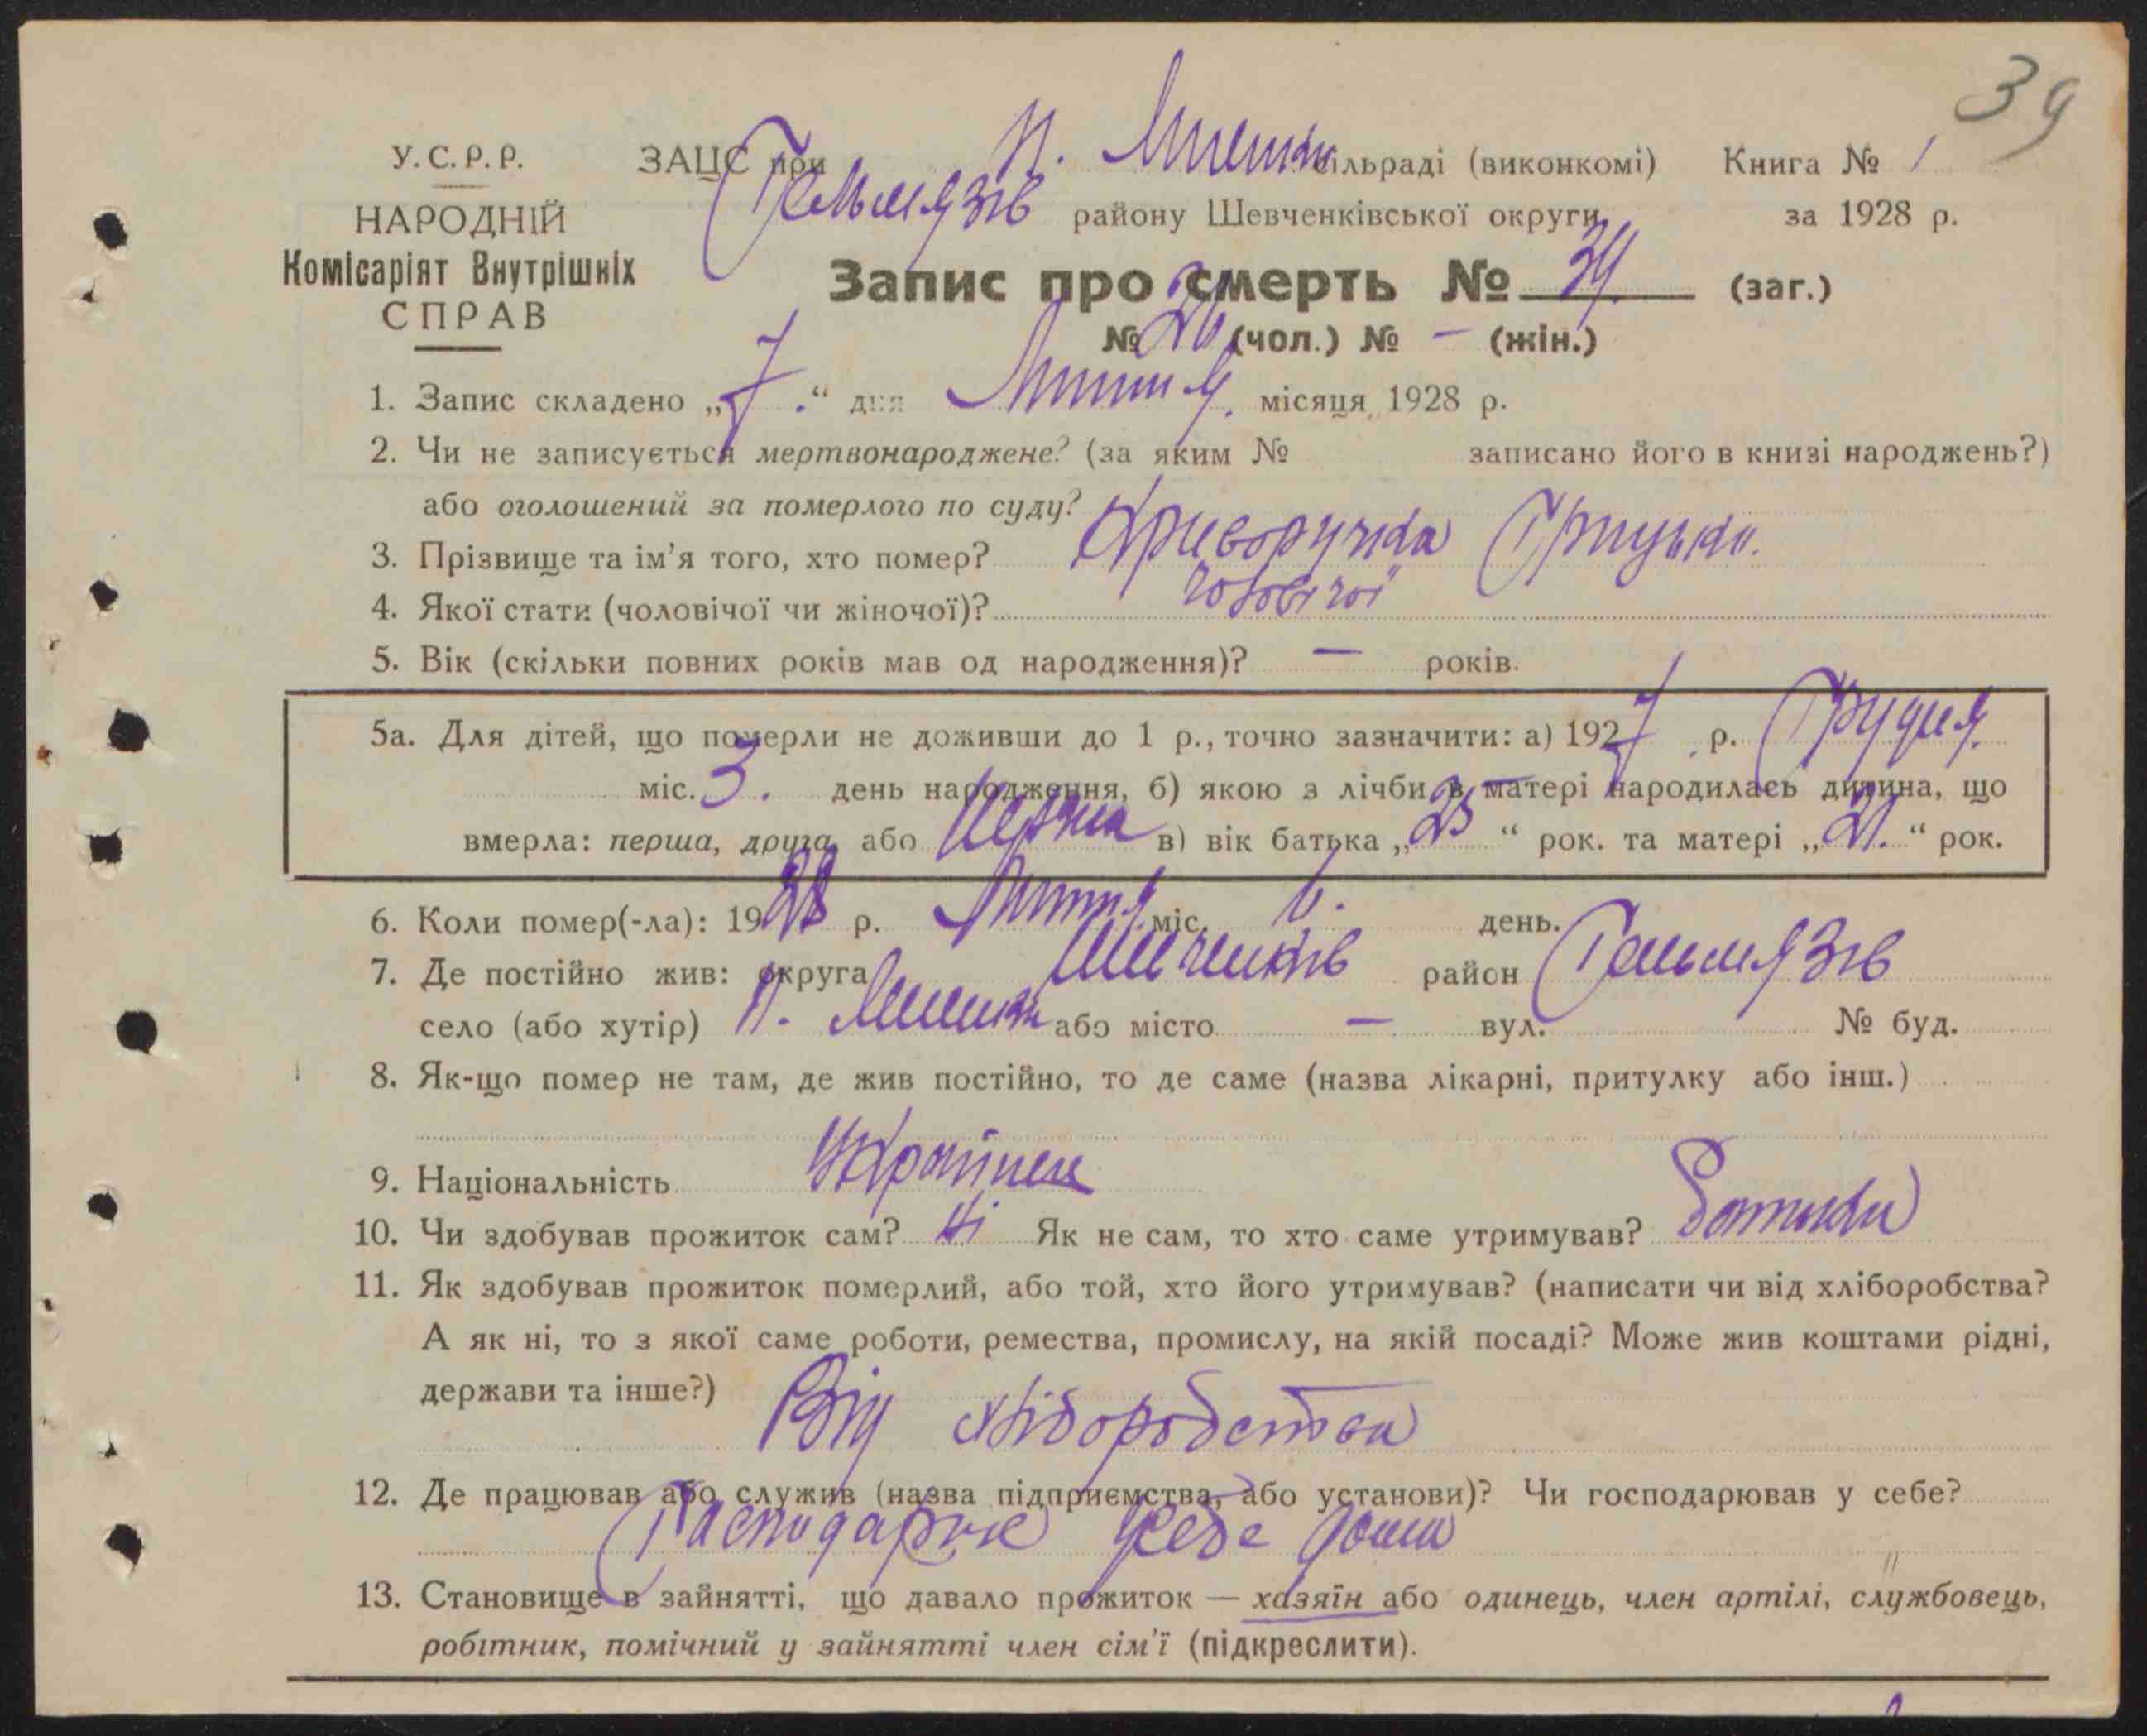 39
У.С.Р.Р. ЗАЦС при П. сільраді (виконкомі) Книга № 1
НАРОДНІЙ Гельмязів району Шевченківської округи за 1928 р.
Комісаріят Внутрішніх
СПРАВ
Запис про смерть № 39. (заг.)
№ 26 (чол.) № — (жін.)
1. Запис складено „7.“ дня Липня. місяця 1928 р.
2. Чи не записується мертвонароджене? (за яким № записано його в книзі народжень?)
або оголошений за померлого по суду?
3. Прізвище та ім'я того, хто помер? Криворучка Грицько.
4. Якої стати (чоловічої чи жіночої)? чоловічої
5. Вік (скільки повних років мав од народження)? — років.
5а. Для дітей, що померли не доживши до 1 р., точно зазначити: а) 1927 р. Грудня.
міс. 3. день народження, б) якою з лічби в матері народилась дитина, що
вмерла: перша, друга, або перша в) вік батька „25“ рок. та матері „21.“ рок.
6. Коли помер(-ла): 1928 р. Липня міс. 6. день.
7. Де постійно жив: округа Шевченків район Гельмязів
село (або хутір) П. або місто — вул. № буд.
8. Як-що помер не там, де жив постійно, то де саме (назва лікарні, притулку або інш.)
9. Національність Українец
10. Чи здобував прожиток сам? Ні Як не сам, то хто саме утримував? Батьки
11. Як здобував прожиток померлий, або той, хто його утримував? (написати чи від хліборобства?
А як ні, то з якої саме роботи, ремества, промислу, на якій посаді? Може жив коштами рідні,
держави та інше?) Від хліборобства
12. Де працював або служив (назва підприємства, або установи)? Чи господарював у себе?
у себе дома
13. Становище в зайнятті, що давало прожиток — хазяїн або одинець, член артілі, службовець,
робітник, помічний у зайнятті член сім'ї (підкреслити).